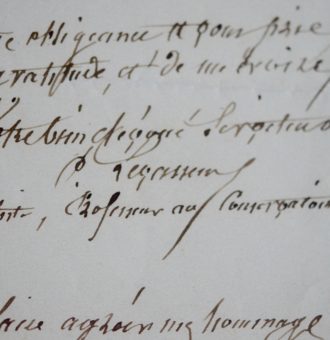 obligeance et vous prie
gratitude, et de me croire
votre bien dévoué Serviteur
P. Levasseur
Professeur au Conservatoire
agréer mes hommage